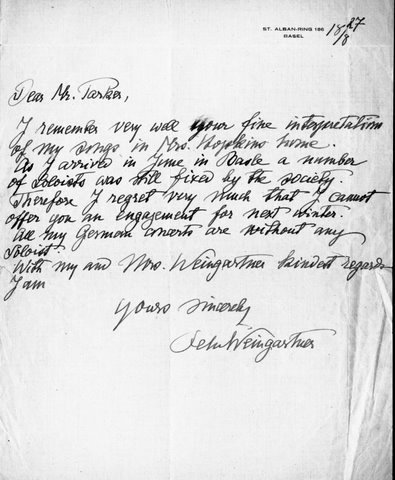 ST. ALBAN-RING 186
BASEL
18/8 27
Dear Mr. Parker,
I remember very well your fine interpretation
of my songs in Mrs. Hopkins home.
As I arrived in June in Basle a number
of Soloists was still fixed by the society.
Therefore I regret very much that I cannot
offer you an engagement for next winter.
All my German concerts are without any
Soloist.
With my and Mrs. Weingartner kindest regards
I am
Yours sincerely
Felix Weingartner